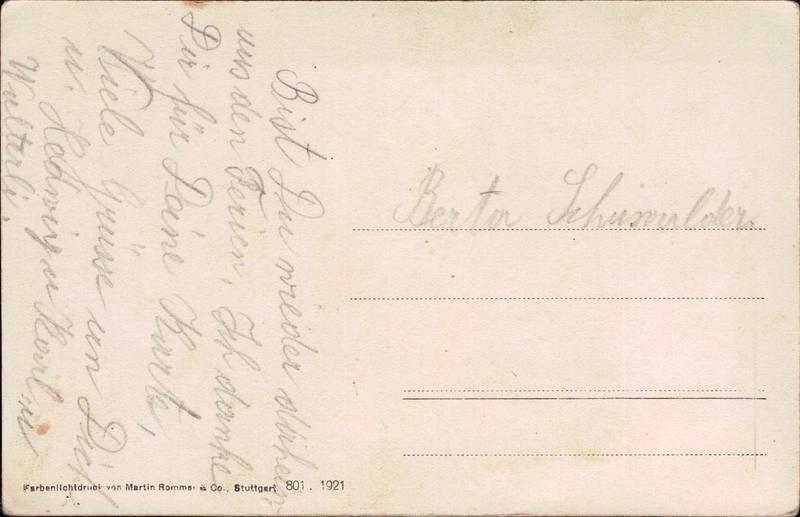 Bist Du wieder daheim
aus den Ferien, Ich danke
Dir für Deine Karte,
Viele Grüsse an Dich
u. Hedwig u Karl u
Walterli.
Berta
Farbenlichtdruck von Martin Rommel & Co., Stuttgart. 801. 1921